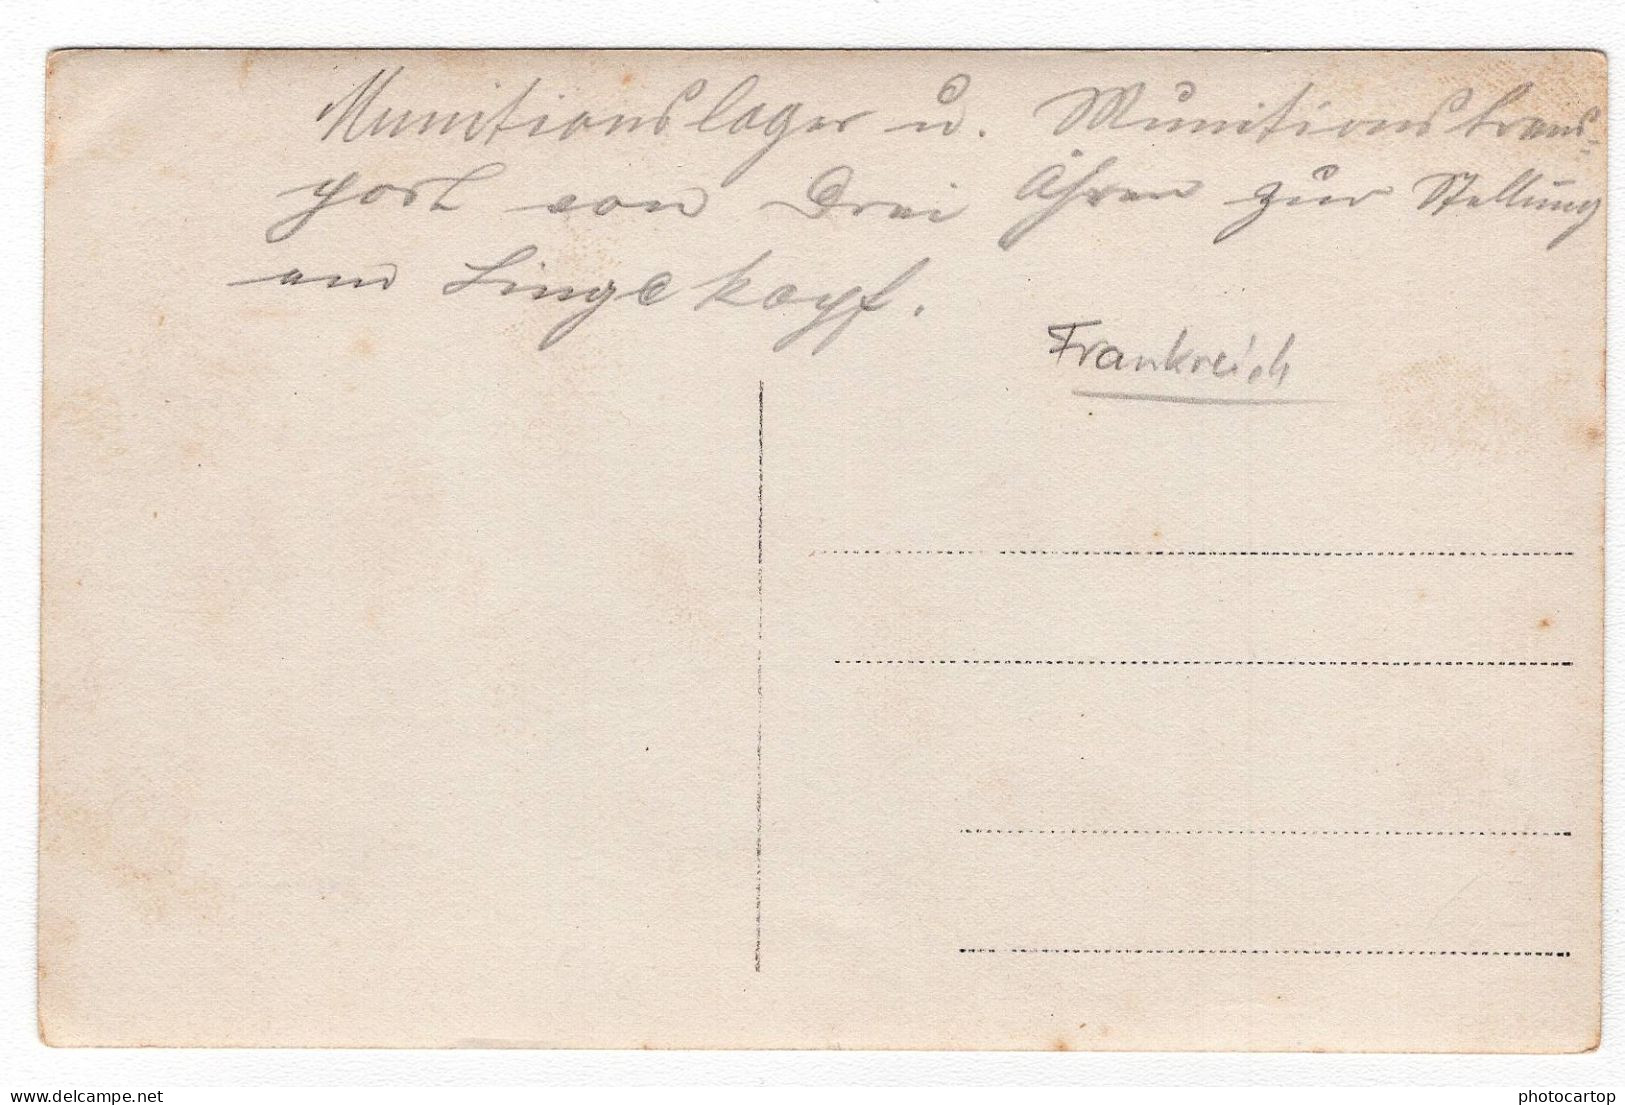 Munitionslager u. Munitionstrans-
port von Drei Ähren zur Stellung
am Lingekopf.
Frankreich
www.delcampe.net
photocartop